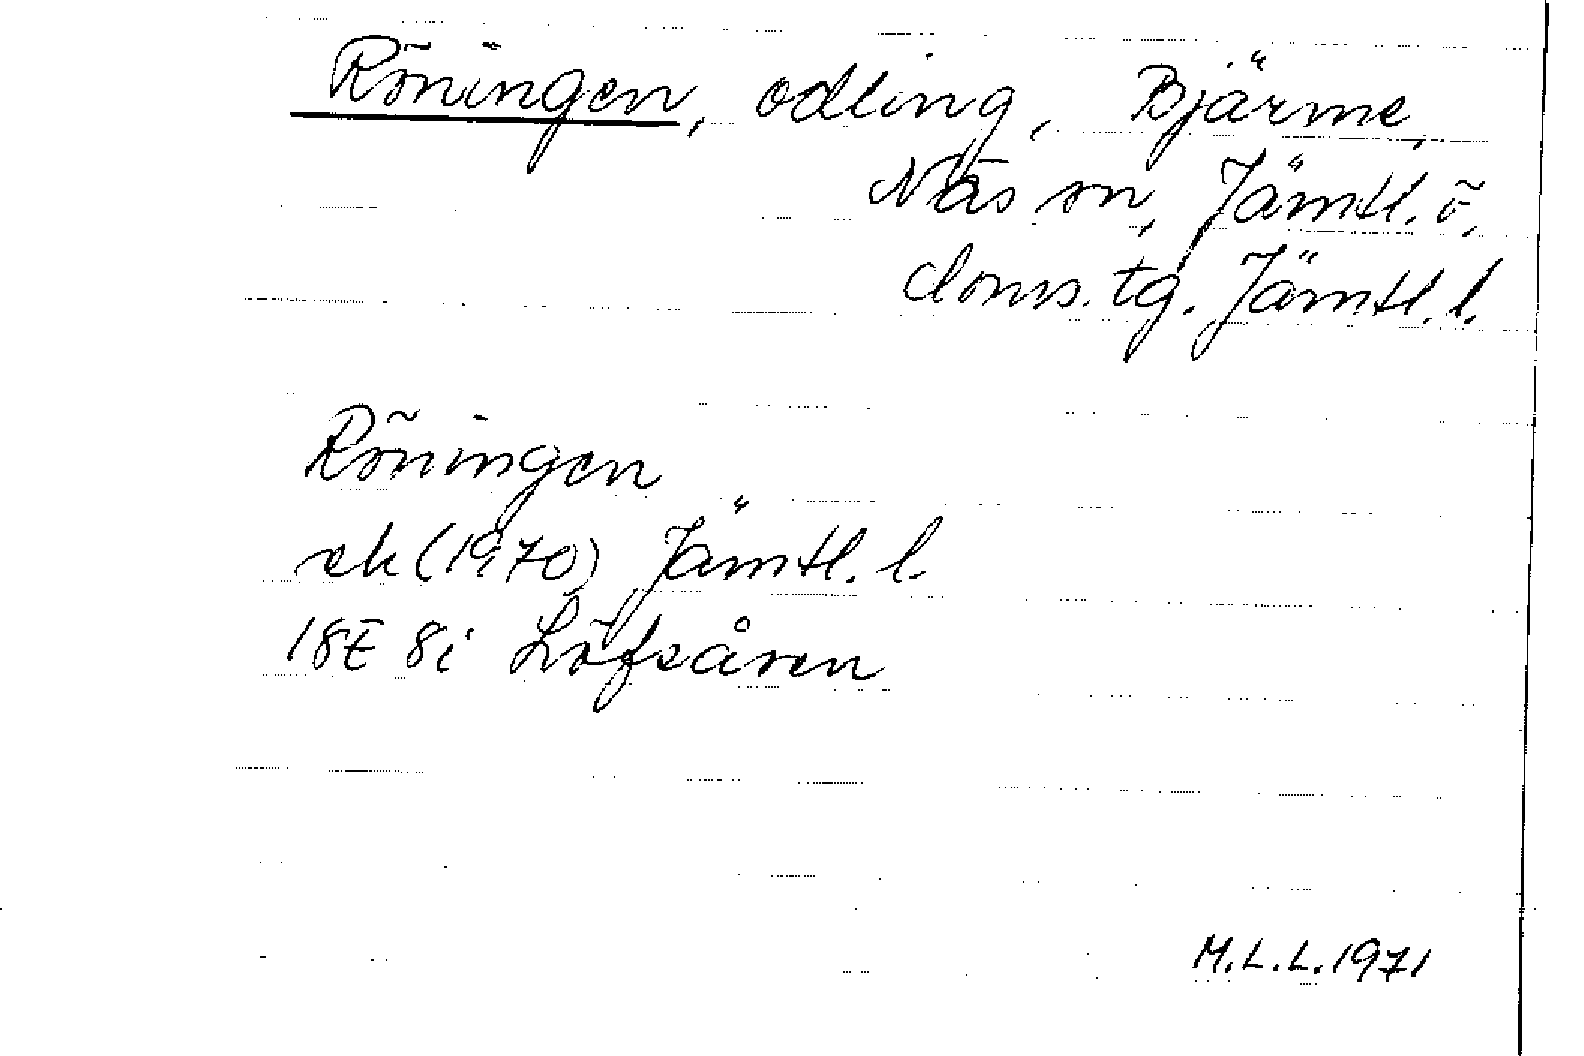 Röningen, odling, Bjärme,
Näs sn, Jämtl. ö.
doms. tg. Jämtl. l.
Röningen
ek (1970) Jämtl. l.
18E 8i Löfsåsen
M.L.L. 1971